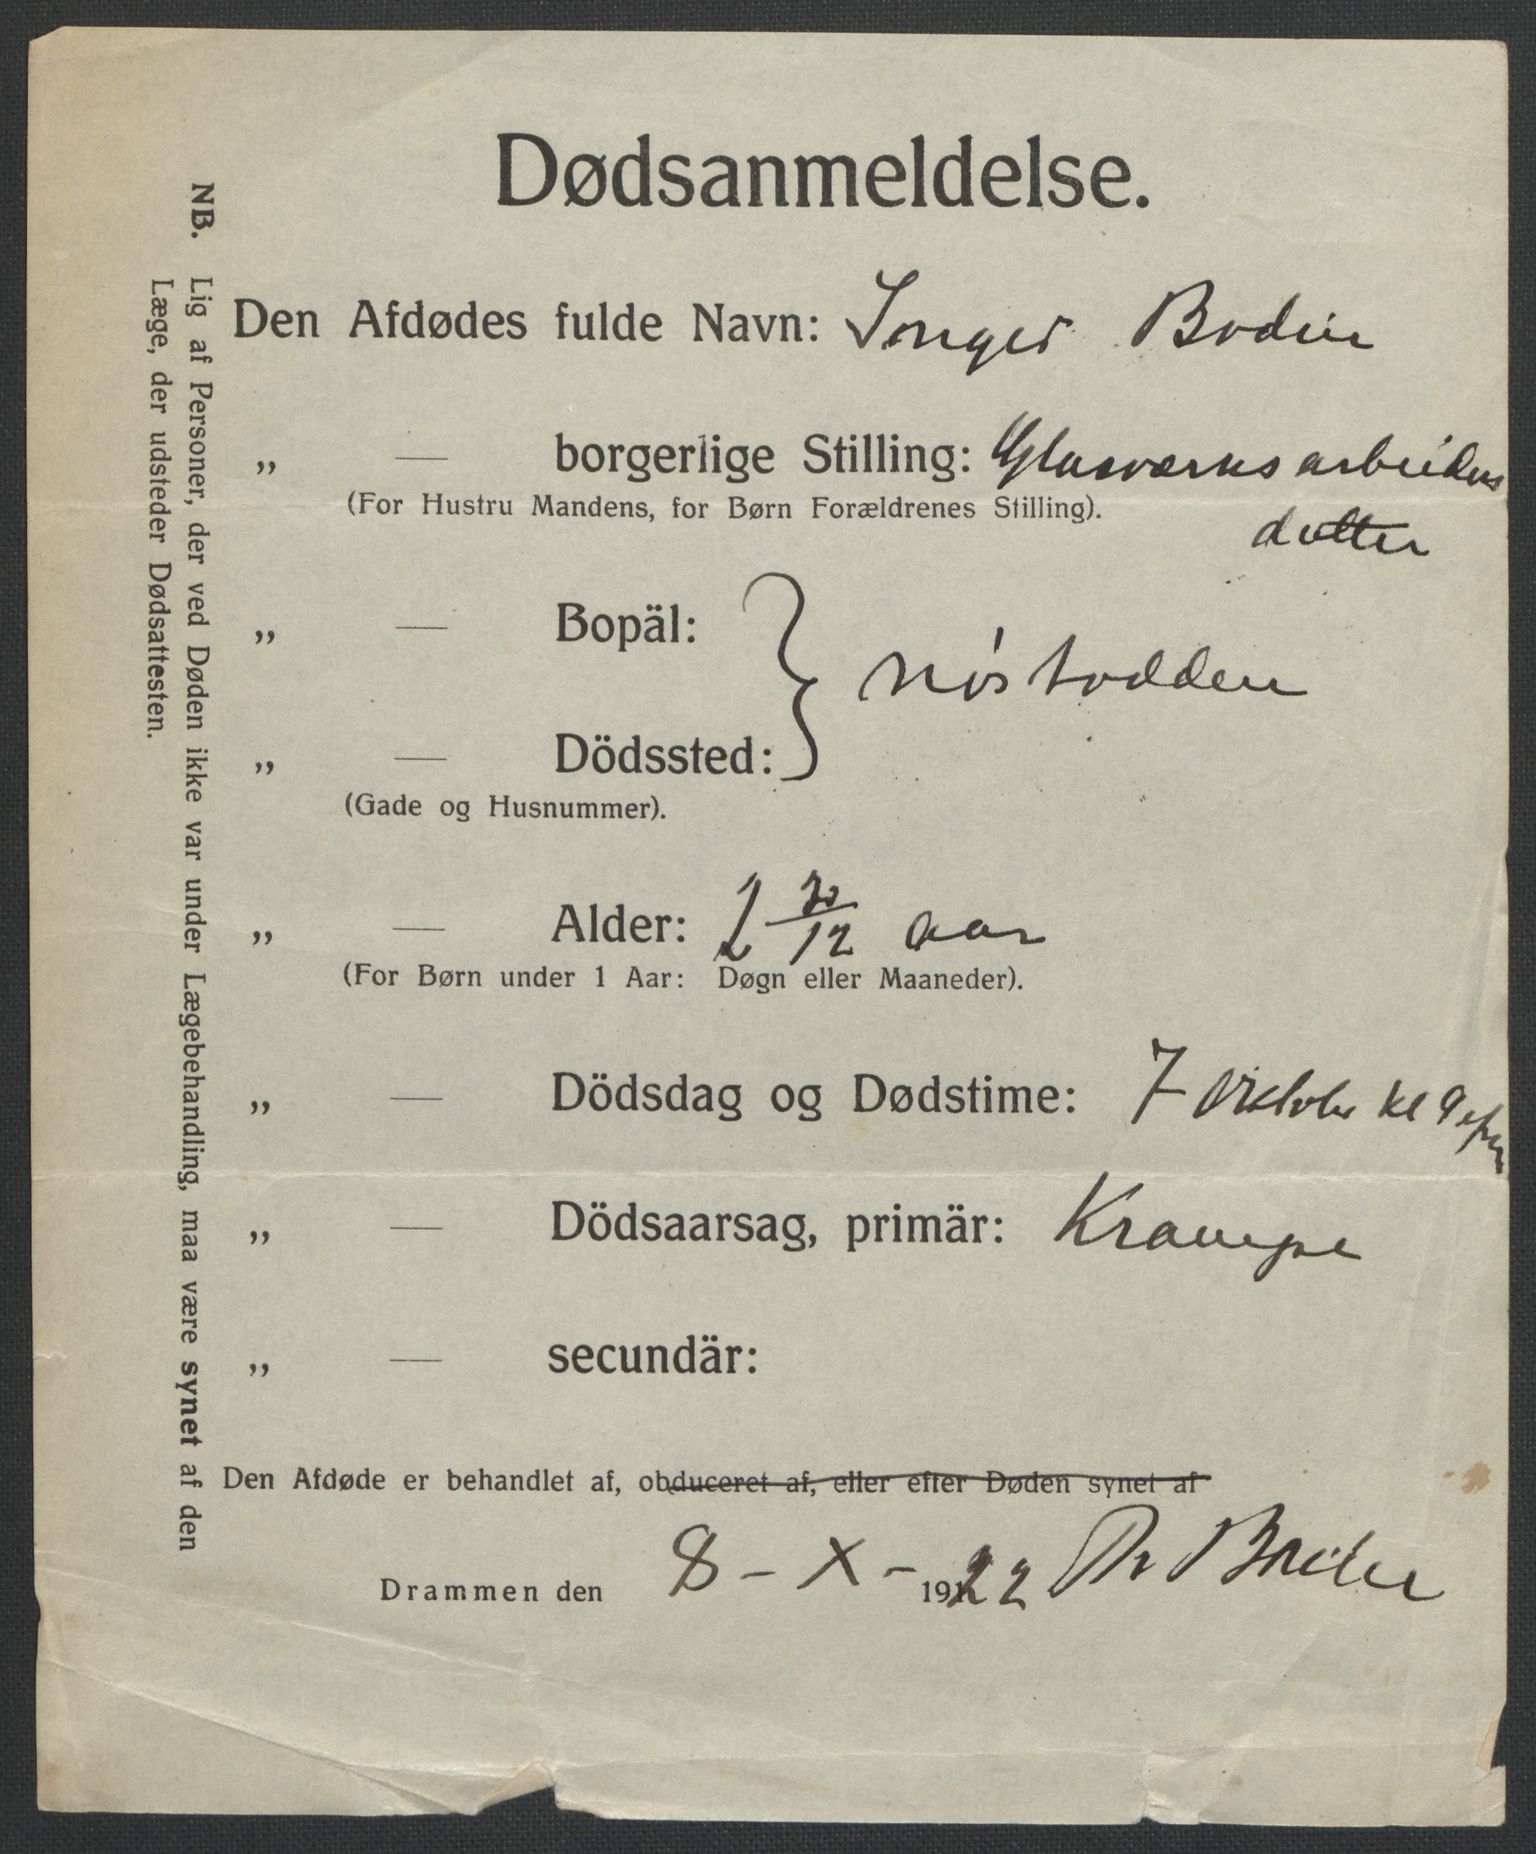 Dødsanmeldelse.
Den Afdødes fulde Navn: Inger Bodin
„ — borgerlige Stilling: Glasværksarbeiders
(For Hustru Mandens, for Børn Forældrenes Stilling).
datter
„ — Bopäl:
Nøstodden
„ — Dödssted:
(Gade og Husnummer).
„ — Alder: 2 /12 aar
(For Børn under 1 Aar: Døgn eller Maaneder).
„ — Dödsdag og Dødstime: 7 Oktober kl 9
„ — Dödsaarsag, primär: Krampe
„ — secundär:
Den Afdøde er behandlet af, obduceret af, eller efter Døden synet af
Drammen den 8 – X – 1922 Dr
NB. Lig af Personer, der ved Døden ikke var under Lægebehandling, maa være synet af den
Læge, der udsteder Dødsattesten.